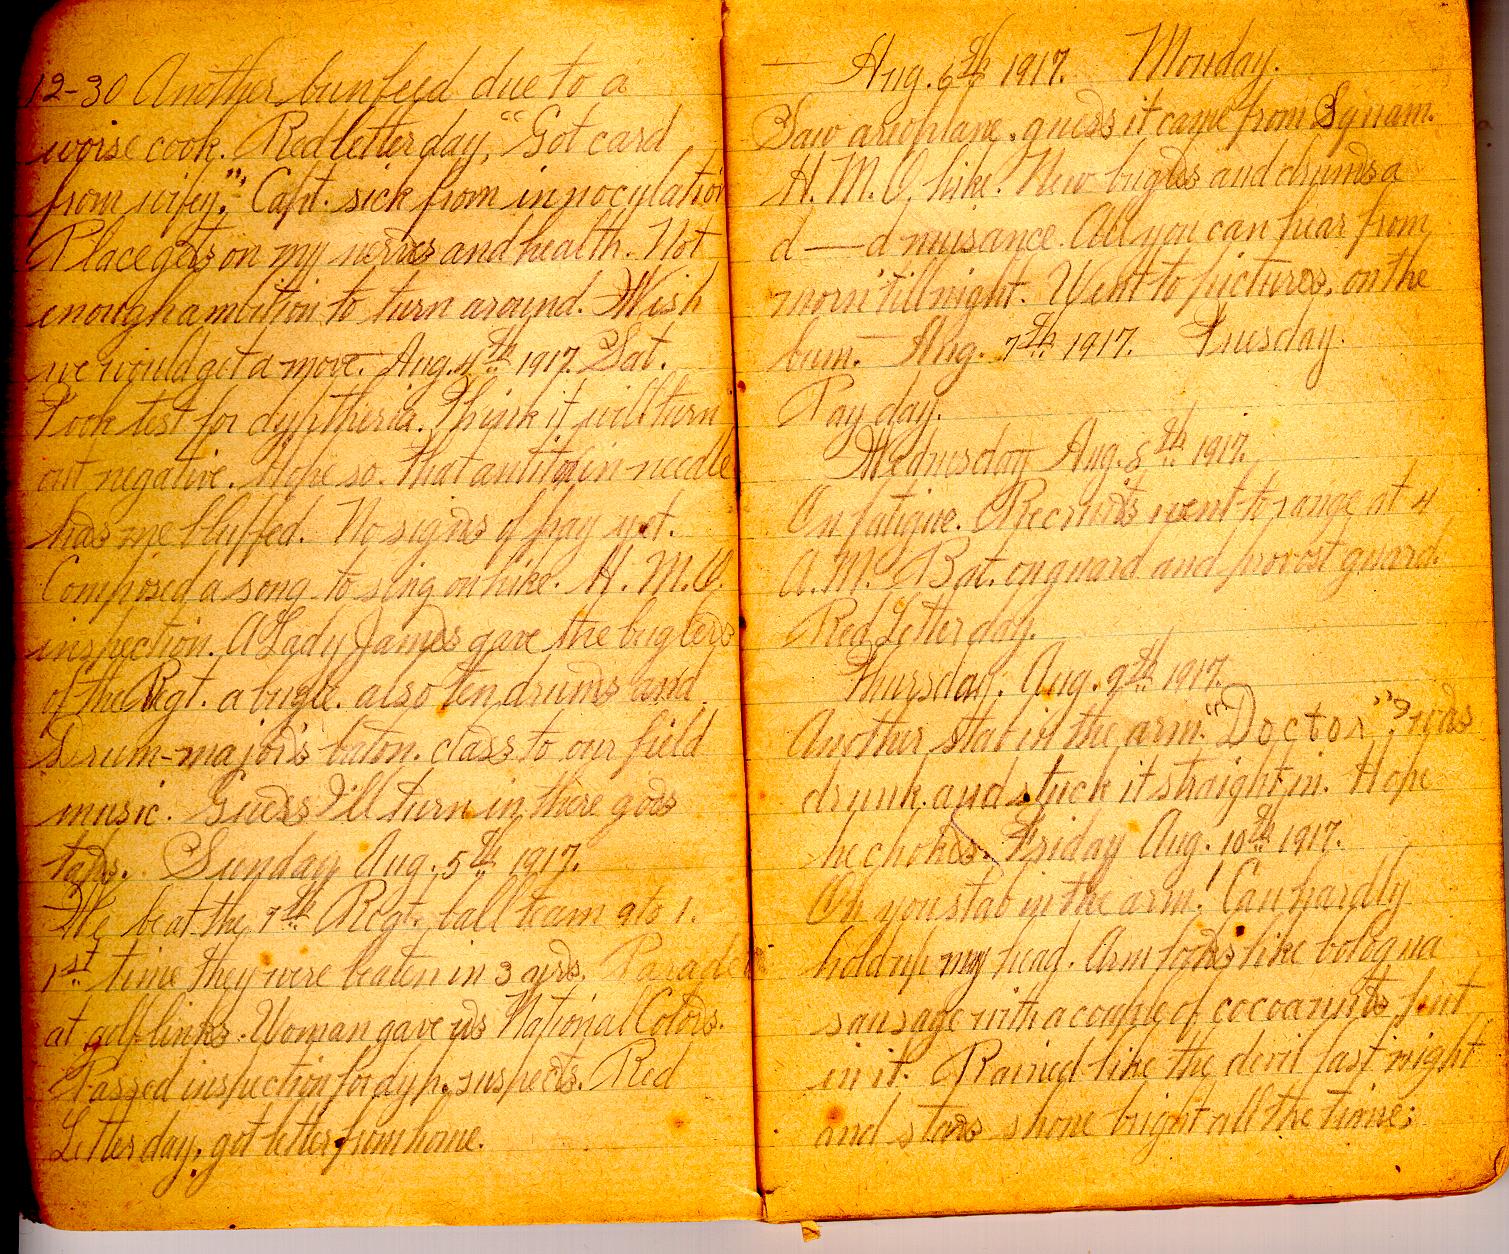 12-30 Another bum feed due to a
worse cook. Red letter day, "Got card
from wifey", Capt. sick from innoculation
Place gets on my nerves and health. Not
enough ambition to turn around. Wish
we would get a move. Aug. 4th 1917. Sat.
Took test for dyptheria. Think it will turn
out negative. Hope so. That antitoxin needle
has me bluffed. No signs of pay yet.
Composed a song to sing on hike. H. M. O.
inspection. A Lady James gave the buglers
of the Regt. a bugle. also ten drums and
Drum-major's baton. class to our field
music. Guess I'll turn in, there goes
taps. Sunday Aug. 5th 1917.
We beat the 7th Regt. ball team 9 to 1.
1st time they were beaten in 3 yrs. Parade
at golf links. Woman gave us National Colors.
Passed inspection for dyp. suspects. Red
Letter day, got letter from home.
— Aug. 6th 1917. Monday.
Saw aroplane, guess it came from Squam.
H. M. O. hike. New bugles and drums a
d—d nuisance. All you can hear from
morn 'till night. Went to pictures, on the
bum. — Aug. 7th 1917. Tuesday.
Pay day.
Wednesday Aug. 8th 1917.
On fatigue. Recruits went to range at 4
A.M. Bat. on guard and provost guard.
Red Letter day.
Thursday. Aug. 9th 1917.
Another stab in the arm. "Doctor"? was
drunk and stuck it straight in. Hope
he chokes. Friday Aug. 10th 1917.
Oh you stab in the arm! Can hardly
hold up my head. Arm looks like bologna
sausage with a couple of cocoanuts put
in it. Rained like the devil last night
and stars shone bright all the time;